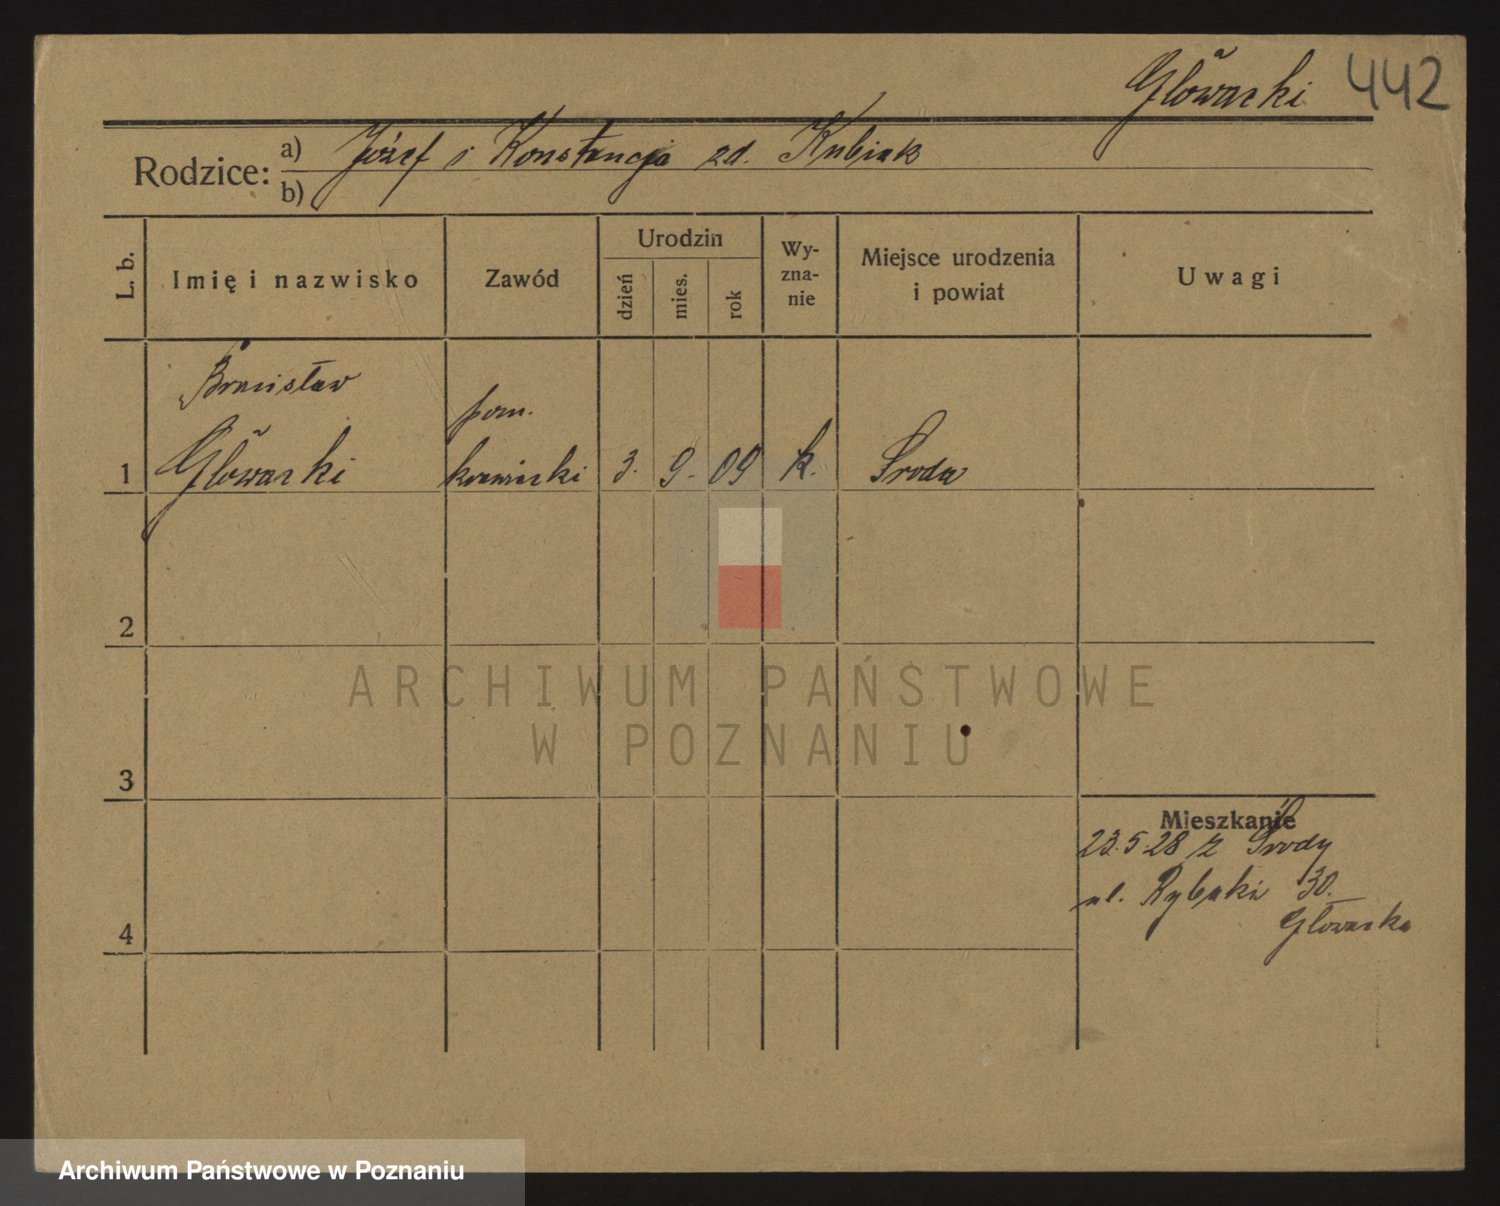 Głowacki 442
Rodzice: a) Józef i Konstancja zd. Kubiak
b)
L. b. Imię i nazwisko Zawód Urodzin dzień mies. rok Wy-zna-nie Miejsce urodzenia i powiat Uwagi
Bronisław
pom.
1 Głowacki krawiecki 3. 9. 09 k. Środa
2
ARCHIWUM PAŃSTWOWE
W POZNANIU
3
Mieszkanie
23.5.28 z Środy
ul. Rybaki 30.
Głowacka
4
Archiwum Państwowe w Poznaniu